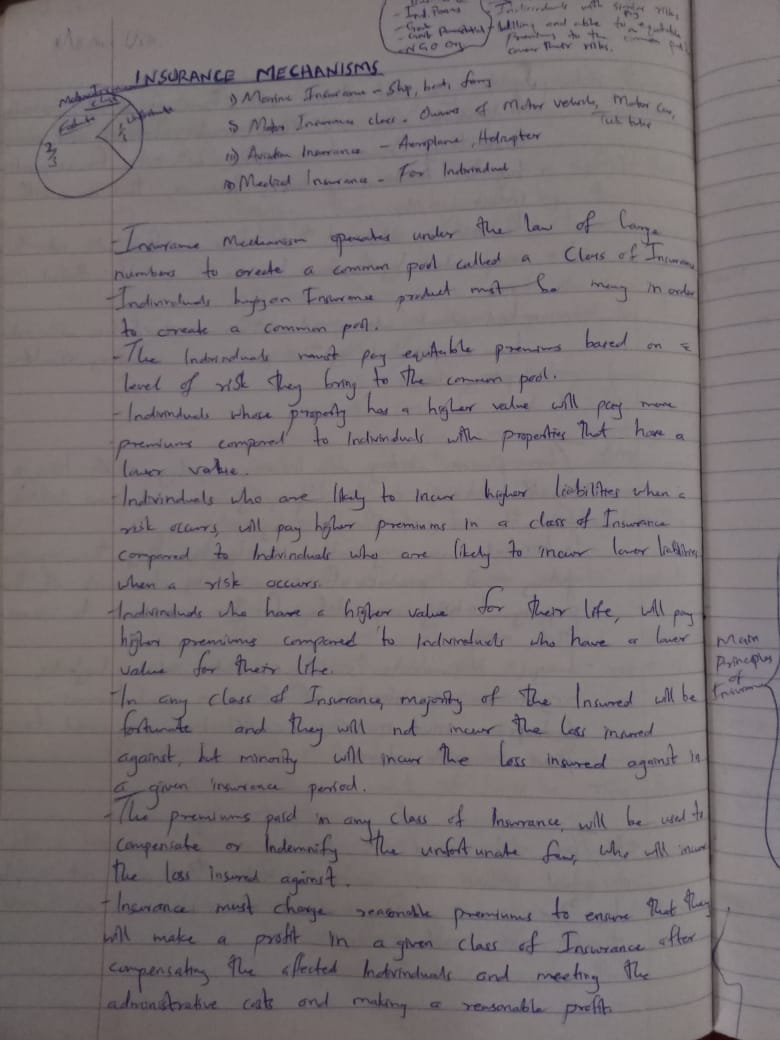 - Ind. Persons
- Govt
- Govt Parastatal
- NGO Org
Individuals with similar risks,
willing and able to pay equitable
premiums to the common pool
cover their risks.
INSURANCE MECHANISMS
Motor Insurance
class
Fortunate
2/3
1/3
Unfortunate
i) Marine Insurance - Ship, boat, ferry
ii) Motor Insurance class - Owners of Motor vehicle, Motor Car,
Tuk tuk
iii) Aviation Insurance - Aeroplane, Helicopter
iv) Medical Insurance - For Individual
- Insurance Mechanism operates under the law of large
numbers to create a common pool called a Class of Insurance
- Individuals buying an Insurance product must be many in order
to create a common pool.
- The Individuals must pay equitable premiums based on
level of risk they bring to the common pool.
- Individuals whose property has a higher value will pay more
premiums compared to Individuals with properties that have a
lower value.
- Individuals who are likely to incur higher liabilities when a
risk occurs, will pay higher premiums in a class of Insurance
compared to Individuals who are likely to incur lower liabilities
when a risk occurs.
- Individuals who have a higher value for their life, will pay
higher premiums compared to Individuals who have a lower
value for their life.
- In any class of Insurance, majority of the Insured will be
fortunate and they will not incur the loss insured
against, but minority will incur the loss insured against in
a given insurance period.
- The premiums paid in any class of Insurance, will be used to
compensate or Indemnify the unfortunate few, who will incur
the loss insured against.
- Insurance must charge reasonable premiums to ensure that they
will make a profit in a given class of Insurance after
compensating the affected Individuals and meeting the
administrative costs and making a reasonable profit.
Main
Principles
of
Insurance